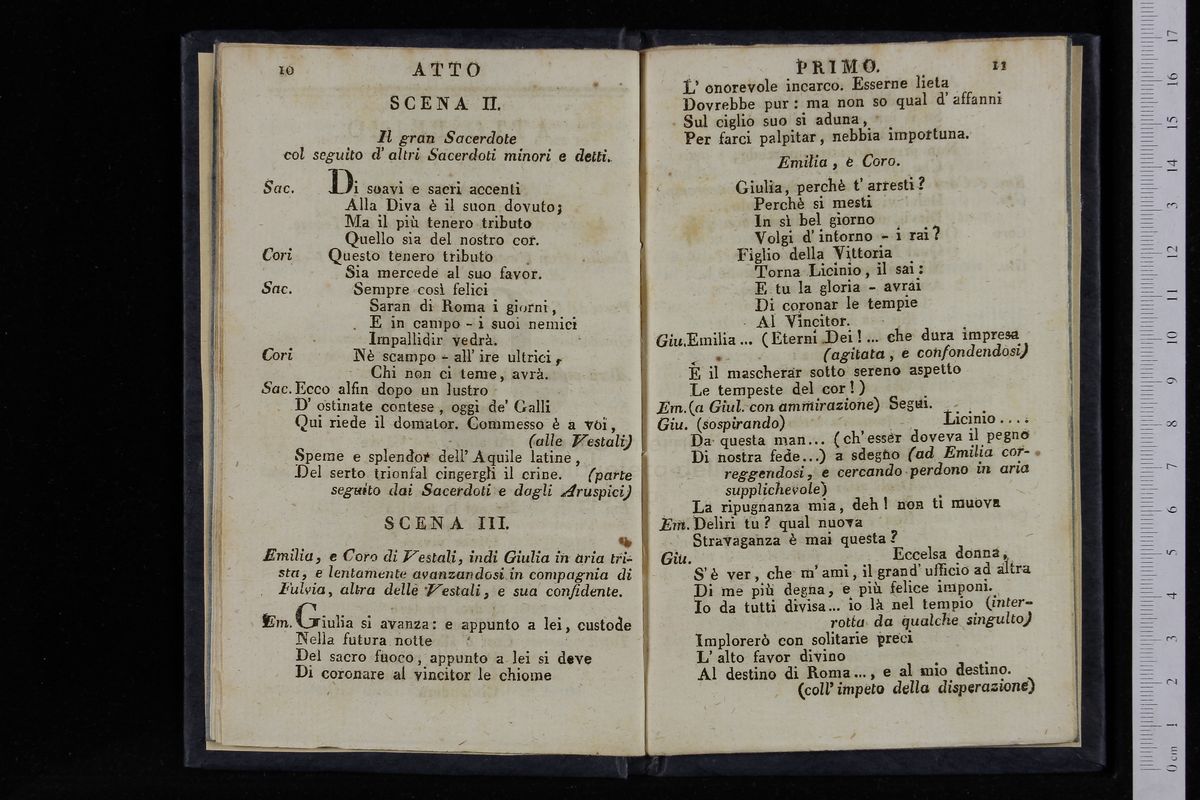 10 ATTO
SCENA II.
Il gran Sacerdote
col seguito d' altri Sacerdoti minori e detti.
Sac. Di soavi e sacri accenti
Alla Diva è il suon dovuto;
Ma il più tenero tributo
Quello sia del nostro cor.
Cori Questo tenero tributo
Sia mercede al suo favor.
Sac. Sempre così felici
Saran di Roma i giorni,
E in campo - i suoi nemici
Impallidir vedrà.
Cori Nè scampo - all' ire ultrici,
Chi non ci teme, avrà.
Sac. Ecco alfin dopo un lustro
D' ostinate contese, oggi de' Galli
Qui riede il domator. Commesso è a voi,
(alle Vestali)
Speme e splendor dell' Aquile latine,
Del serto trionfal cingergli il crine. (parte
seguito dai Sacerdoti e dagli Aruspici)
SCENA III.
Emilia, e Coro di Vestali, indi Giulia in aria tri-
sta, e lentamente avanzandosi in compagnia di
Fulvia, altra delle Vestali, e sua confidente.
Em. Giulia si avanza: e appunto a lei, custode
Nella futura notte
Del sacro fuoco, appunto a lei si deve
Di coronare al vincitor le chiome
PRIMO. 11
L' onorevole incarco. Esserne lieta
Dovrebbe pur: ma non so qual d' affanni
Sul ciglio suo si aduna,
Per farci palpitar, nebbia importuna.
Emilia, e Coro.
Giulia, perchè t' arresti?
Perchè si mesti
In sì bel giorno
Volgi d' intorno - i rai?
Figlio della Vittoria
Torna Licinio, il sai:
E tu la gloria - avrai
Di coronar le tempie
Al Vincitor.
Giu. Emilia... (Eterni Dei!... che dura impresa
(agitata, e confondendosi)
È il mascherar sotto sereno aspetto
Le tempeste del cor!)
Em. (a Giul. con ammirazione) Segui.
Giu. (sospirando) Licinio....
Da questa man... (ch' esser doveva il pegno
Di nostra fede...) a sdegno (ad Emilia cor-
reggendosi, e cercando perdono in aria
supplichevole)
La ripugnanza mia, deh! non ti muova
Em. Deliri tu? qual nuova
Stravaganza è mai questa?
Giu. Eccelsa donna,
S' è ver, che m' ami, il grand' ufficio ad altra
Di me più degna, e più felice imponi.
Io da tutti divisa... io là nel tempio (inter-
rotta da qualche singulto)
Implorerò con solitarie preci
L' alto favor divino
Al destino di Roma..., e al mio destino.
(coll' impeto della disperazione)
0 cm 1 2 3 4 5 6 7 8 9 10 11 12 13 14 15 16 17